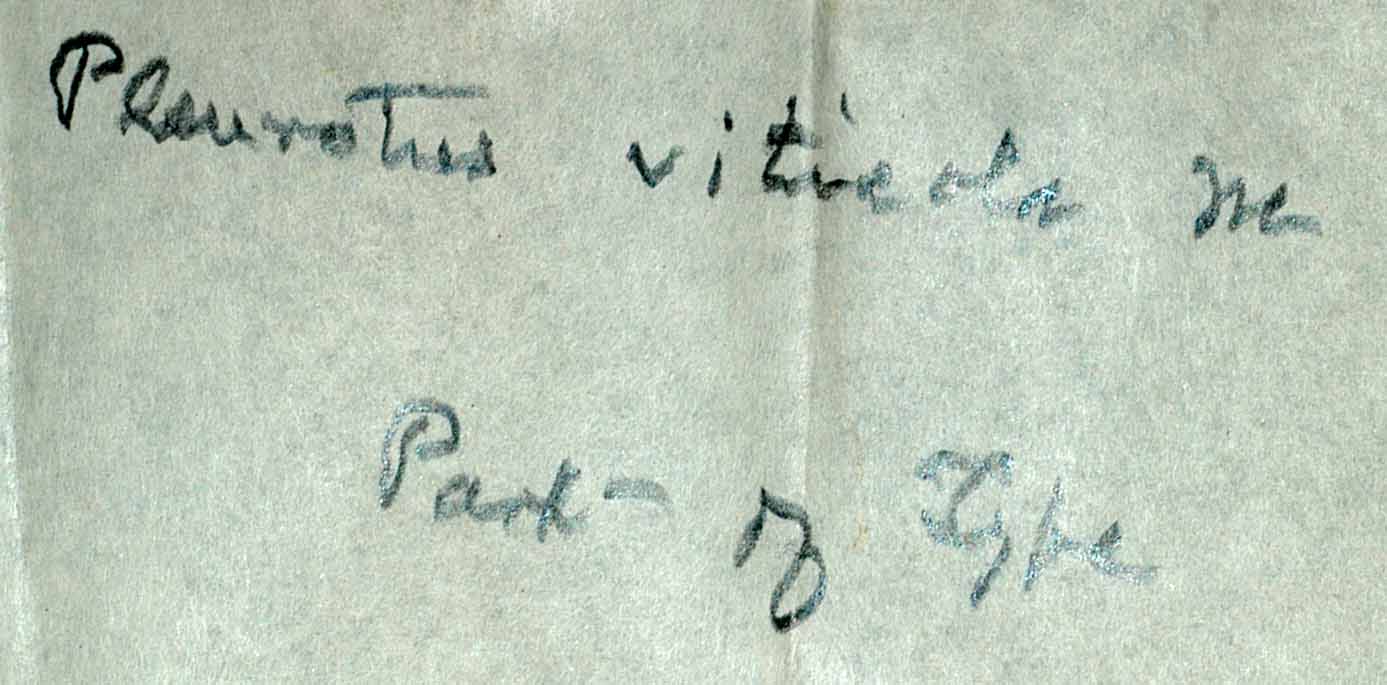 Pleurotus viticola
Part of Type